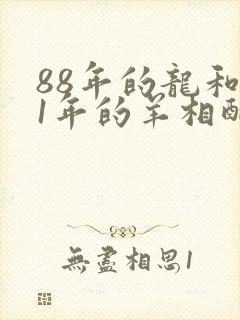 88年的龍和
1年的羊相配
無盡相思1